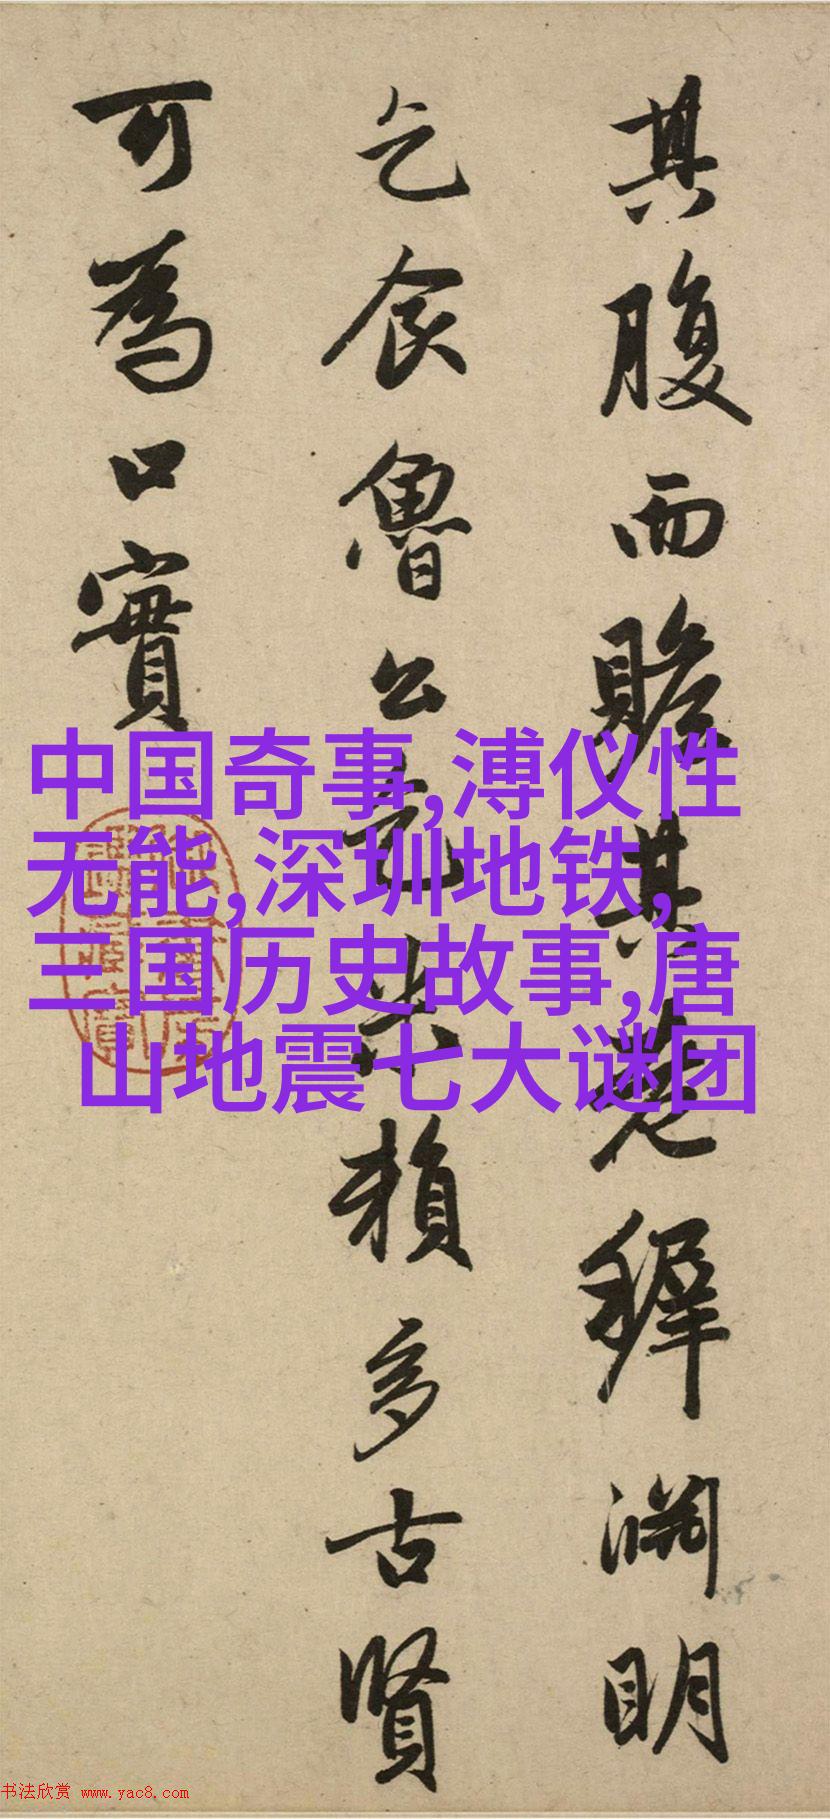 其腹而贍其老穉淵明
乞食魯公乞米賴多古賢
可為口實
中国奇事,溥仪性
无能,深圳地铁,
三国历史故事,唐
山地震七大谜团
书法欣赏 www.yac8.com